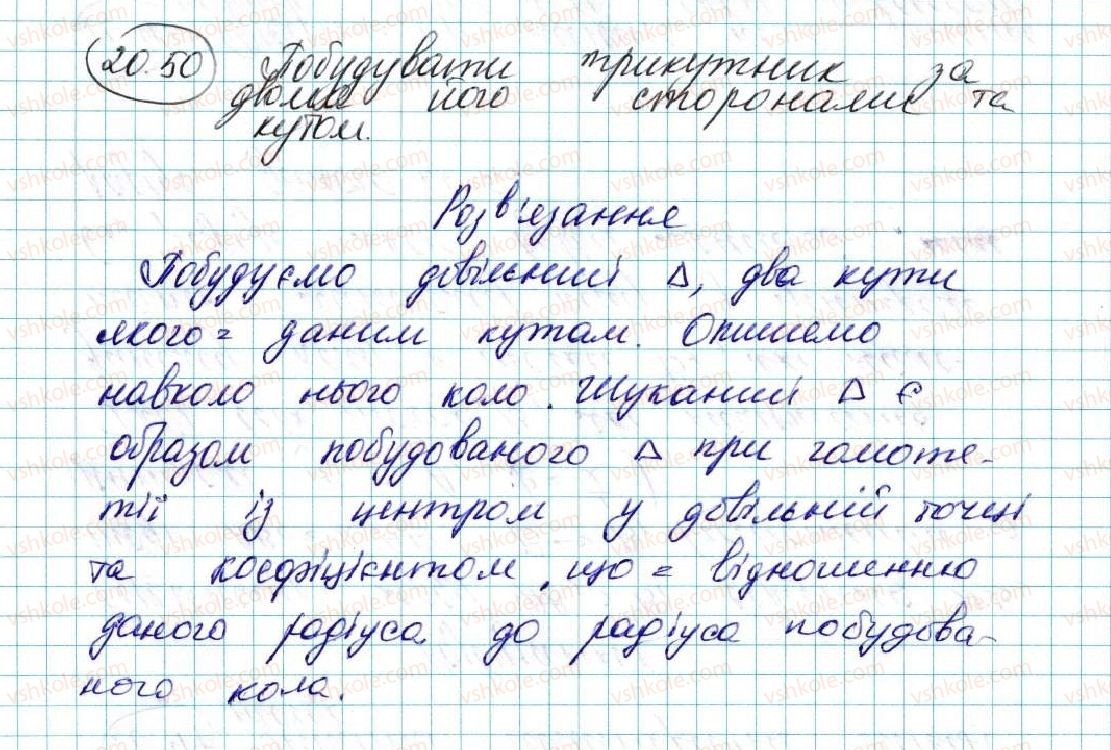 20.50 Побудувати трикутник за
двома його сторонами та
кутом.
Розв'язання
Побудуємо довільний Δ, два кути
якого = даним кутам. Опишемо
навколо нього коло. Шуканий Δ є
образом побудованого Δ при гомоте-
тії із центром у довільній точці
та коефіцієнтом, що = відношенню
даного радіуса до радіуса побудова-
ного кола.